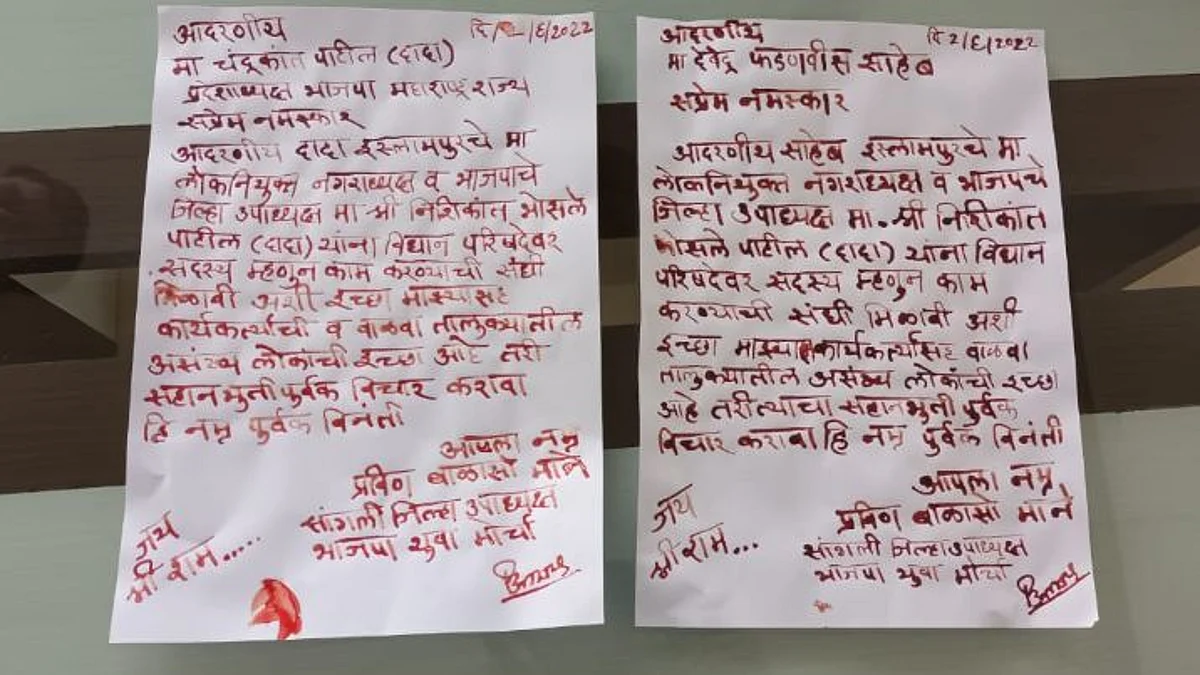 आदरणीय
दि /६/२०२२
मा चंद्रकांत पाटील (दादा)
प्रदेशाध्यक्ष भाजपा महाराष्ट्र राज्य
सप्रेम नमस्कार
आदरणीय दादा इस्लामपुरचे मा
लोकनियुक्त नगराध्यक्ष व भाजपाचे
जिल्हा उपाध्यक्ष मा श्री निशिकांत भोसले
पाटील (दादा) यांना विधान परिषदेवर
सदस्य म्हणुन काम करण्याची संधी
मिळावी अशी इच्छा माझ्यासह
कार्यकर्त्यांची व वाळवा तालुक्यातील
असंख्य लोकांची इच्छा आहे तरी
सहानभुती पुर्वक विचार करावा
हि नम्र पुर्वक विनंती
आपला नम्र
प्रविण बाळासो माने
सांगली जिल्हा उपाध्यक्ष
भाजपा युवा मोर्चा
जय
श्री राम.....
आदरणीय
दि २/६/२०२२
मा देवेंद्र फडणवीस साहेब
सप्रेम नमस्कार
आदरणीय साहेब इस्लामपुरचे मा
लोकनियुक्त नगराध्यक्ष व भाजपचे
जिल्हा उपाध्यक्ष मा. श्री निशिकांत
भोसले पाटील (दादा) यांना विधान
परिषदेवर सदस्य म्हणुन काम
करण्याची संधी मिळावी अशी
इच्छा कार्यकर्त्यासह वाळवा
तालुक्यातील असंख्य लोकांची इच्छा
आहे तरी त्याचा सहानभुती पुर्वक
विचार करावा हि नम्र पुर्वक विनंती
आपला नम्र
प्रविण बाळासो माने
सांगली जिल्हा उपाध्यक्ष
भाजपा युवा मोर्चा
जय
श्री राम...